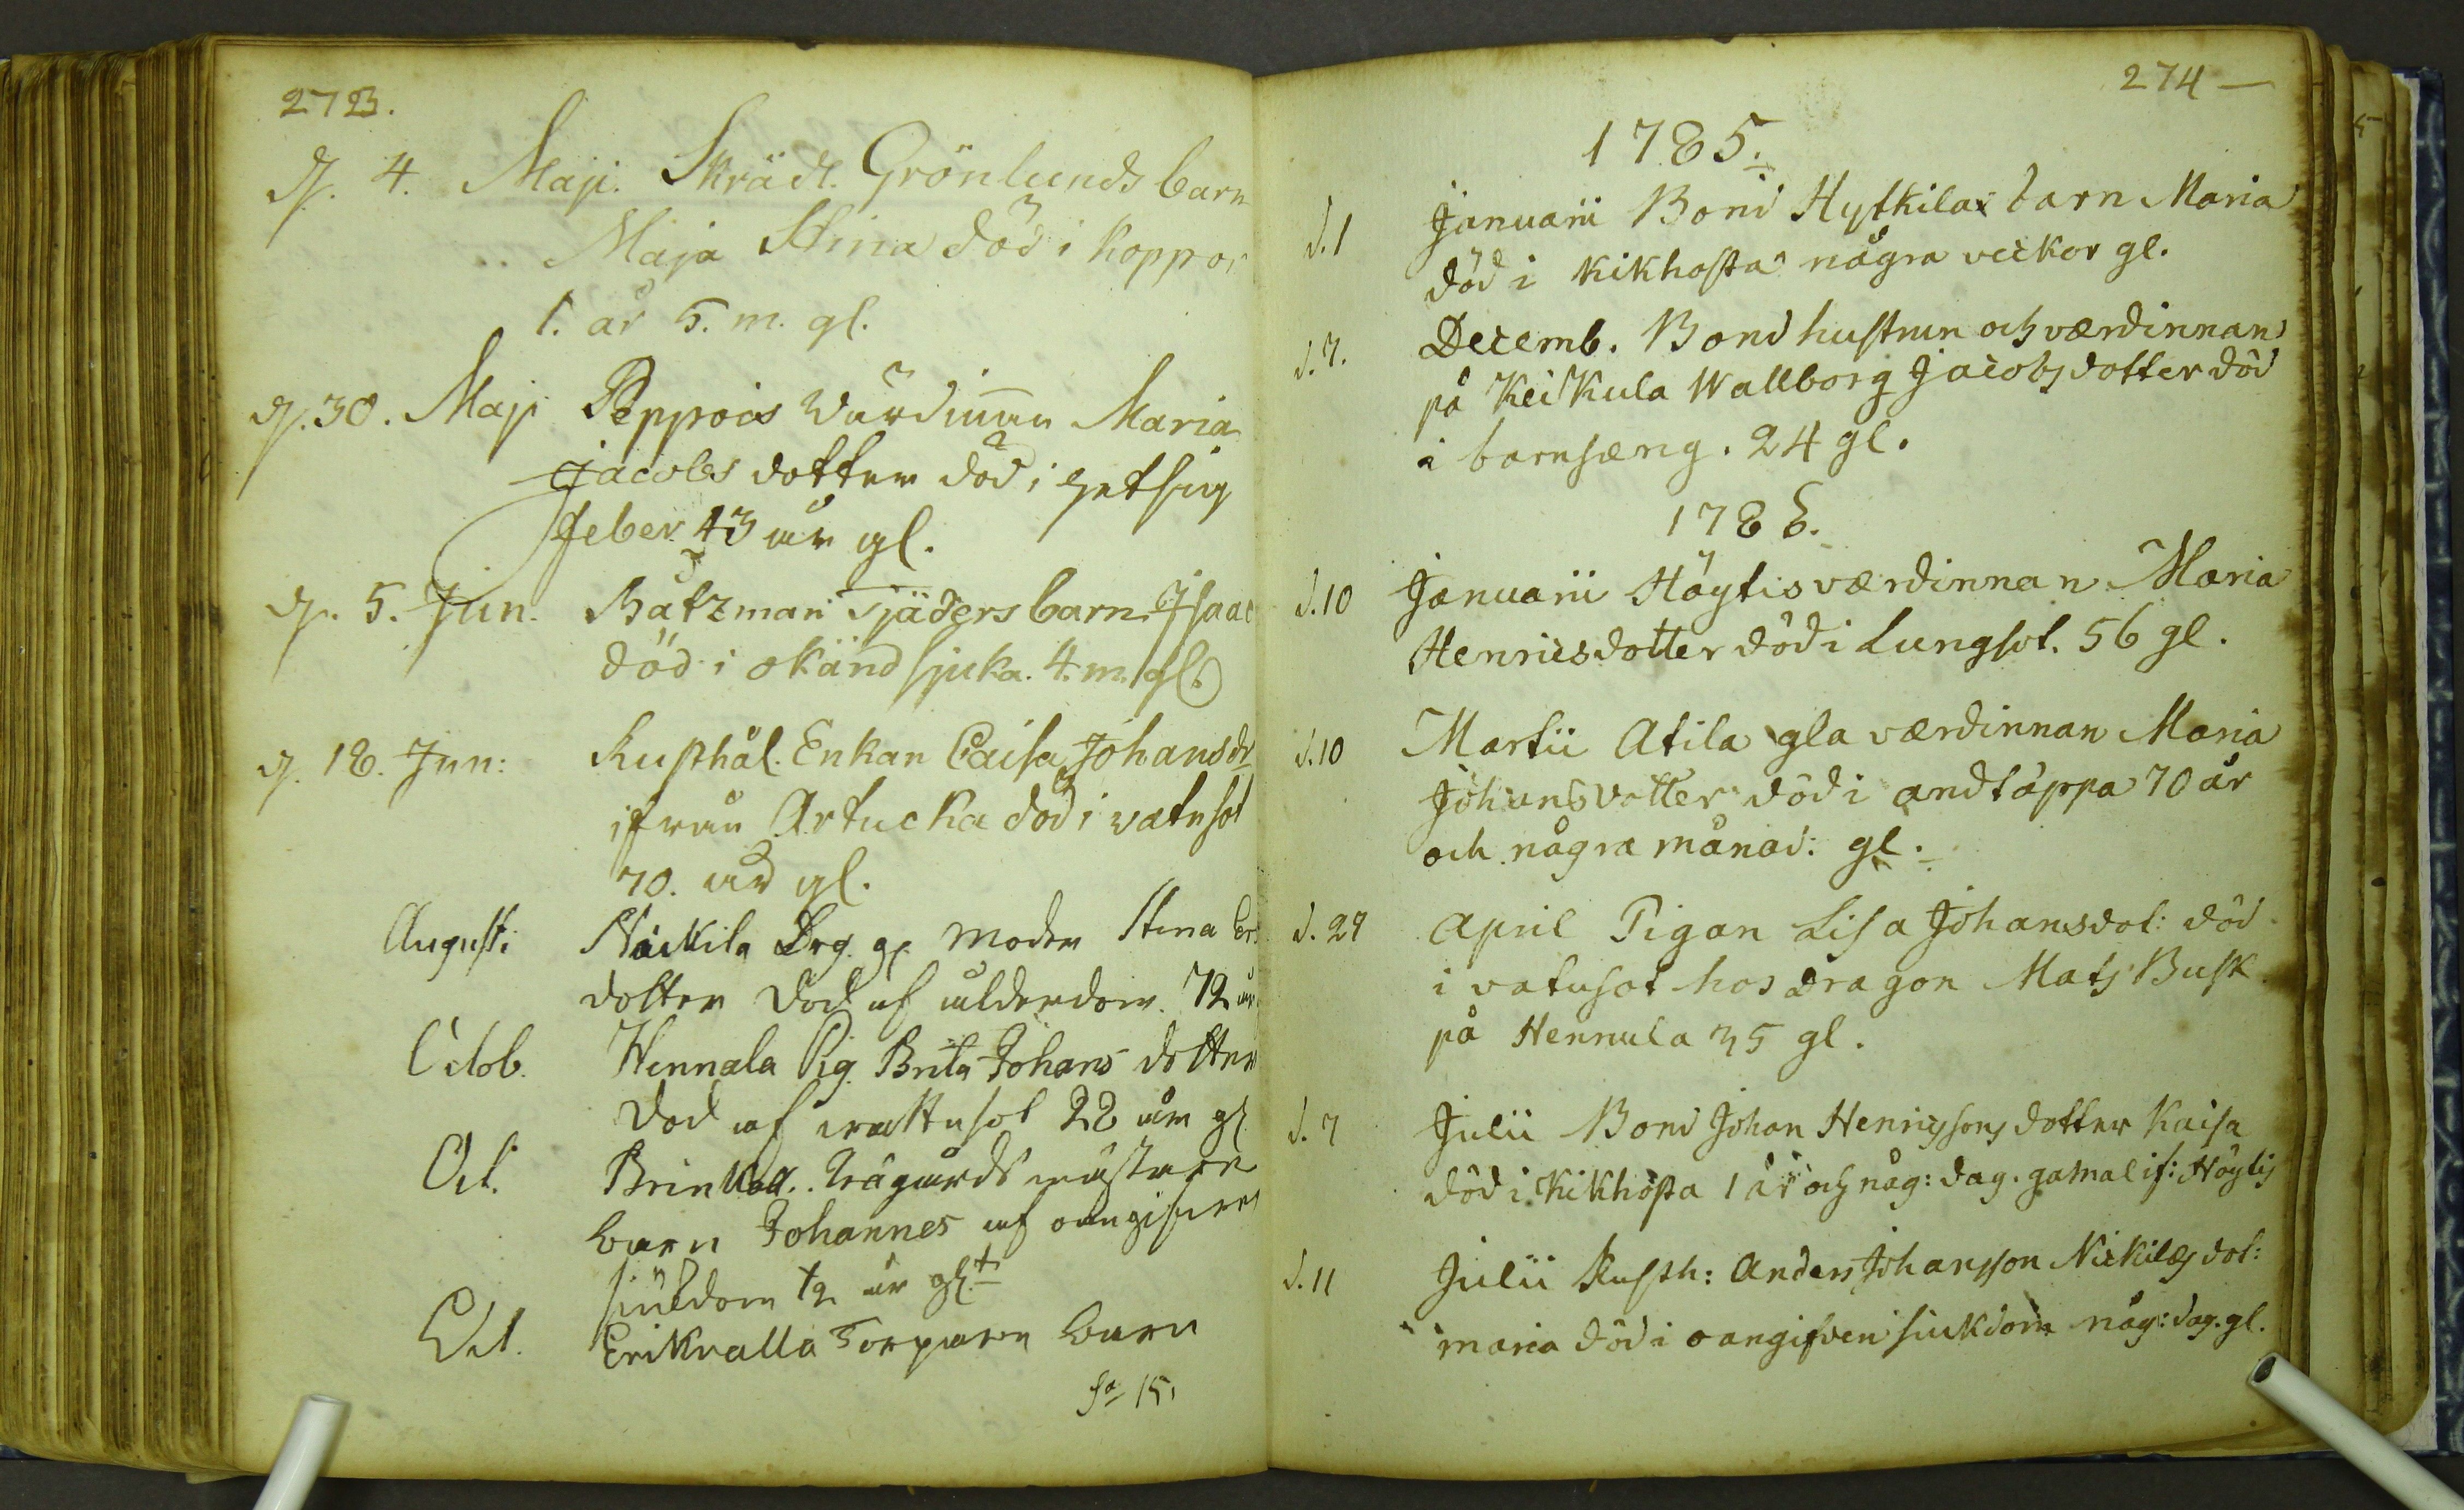 273.
d. 4. Maji. Skräd. Grönlunds barn
Maja Stina död i koppor
1. år 5. m. gl.
d. 30. Maji Peppois wärdinnan Maria
Jacobs dotter död i hetsig
feber 43 år gl.
d. 5. Jun. Båtzman Tjäders barn Isaac
död i okänd sjuka. 4. m. gl.
d. 18. Jun: Rusthål. Enkan Caisa Johansdr
ifrån Artucka död i vatnsot
70. år gl.
Augusti Näckila Drg. gl. moder Stina Ers
dotter död af ålderdom. 72 år
Octob. Hennala Pig. Brita Johans dotter
död af wattusot 28 år gl
Oct. Brinkall. Trägårds mästare
barn Johannes af oangifven
siukdom ½ år gl.
Oct. Erikvalla Torpare barn
Sa 15,
274
1785.
d. 1 Januarii Bond Hyfkilas barn Maria
död i kikhosta några veckor gl.
d. 7. Decemb. Bond hustrun och værdinnan
på Keikula Wallborg Jacobsdotter död
i barnsæng. 24 gl.
1786.
d. 10 Januarii Höytis værdinnan Maria
Henricsdotter död i Lungsot. 56 gl.
d. 10 Martii Atila gla værdinnan Maria
Johansdotter död i andtäppa 70 år
och några månad: gl.
d. 29 April Pigan Lisa Johansdot: död
i vatusot hos Dragon Mats Busk
på Hennula 35 gl.
d. 7 Julii Bond Johan Henricssons dotter Kaisa
död i Kikhosta 1 år och någ: dag. gamal if: Höytis
d. 11 Julii Rusth: Anders Johansson Nickilas dot:
maria död i oangifven siukdom någ: dag. gl.